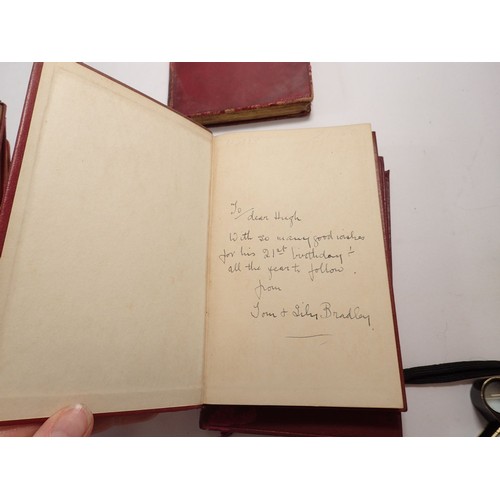 To dear Hugh
With so many good wishes
for his 21st birthday &
all the years to follow.
from
Tom & Bradley